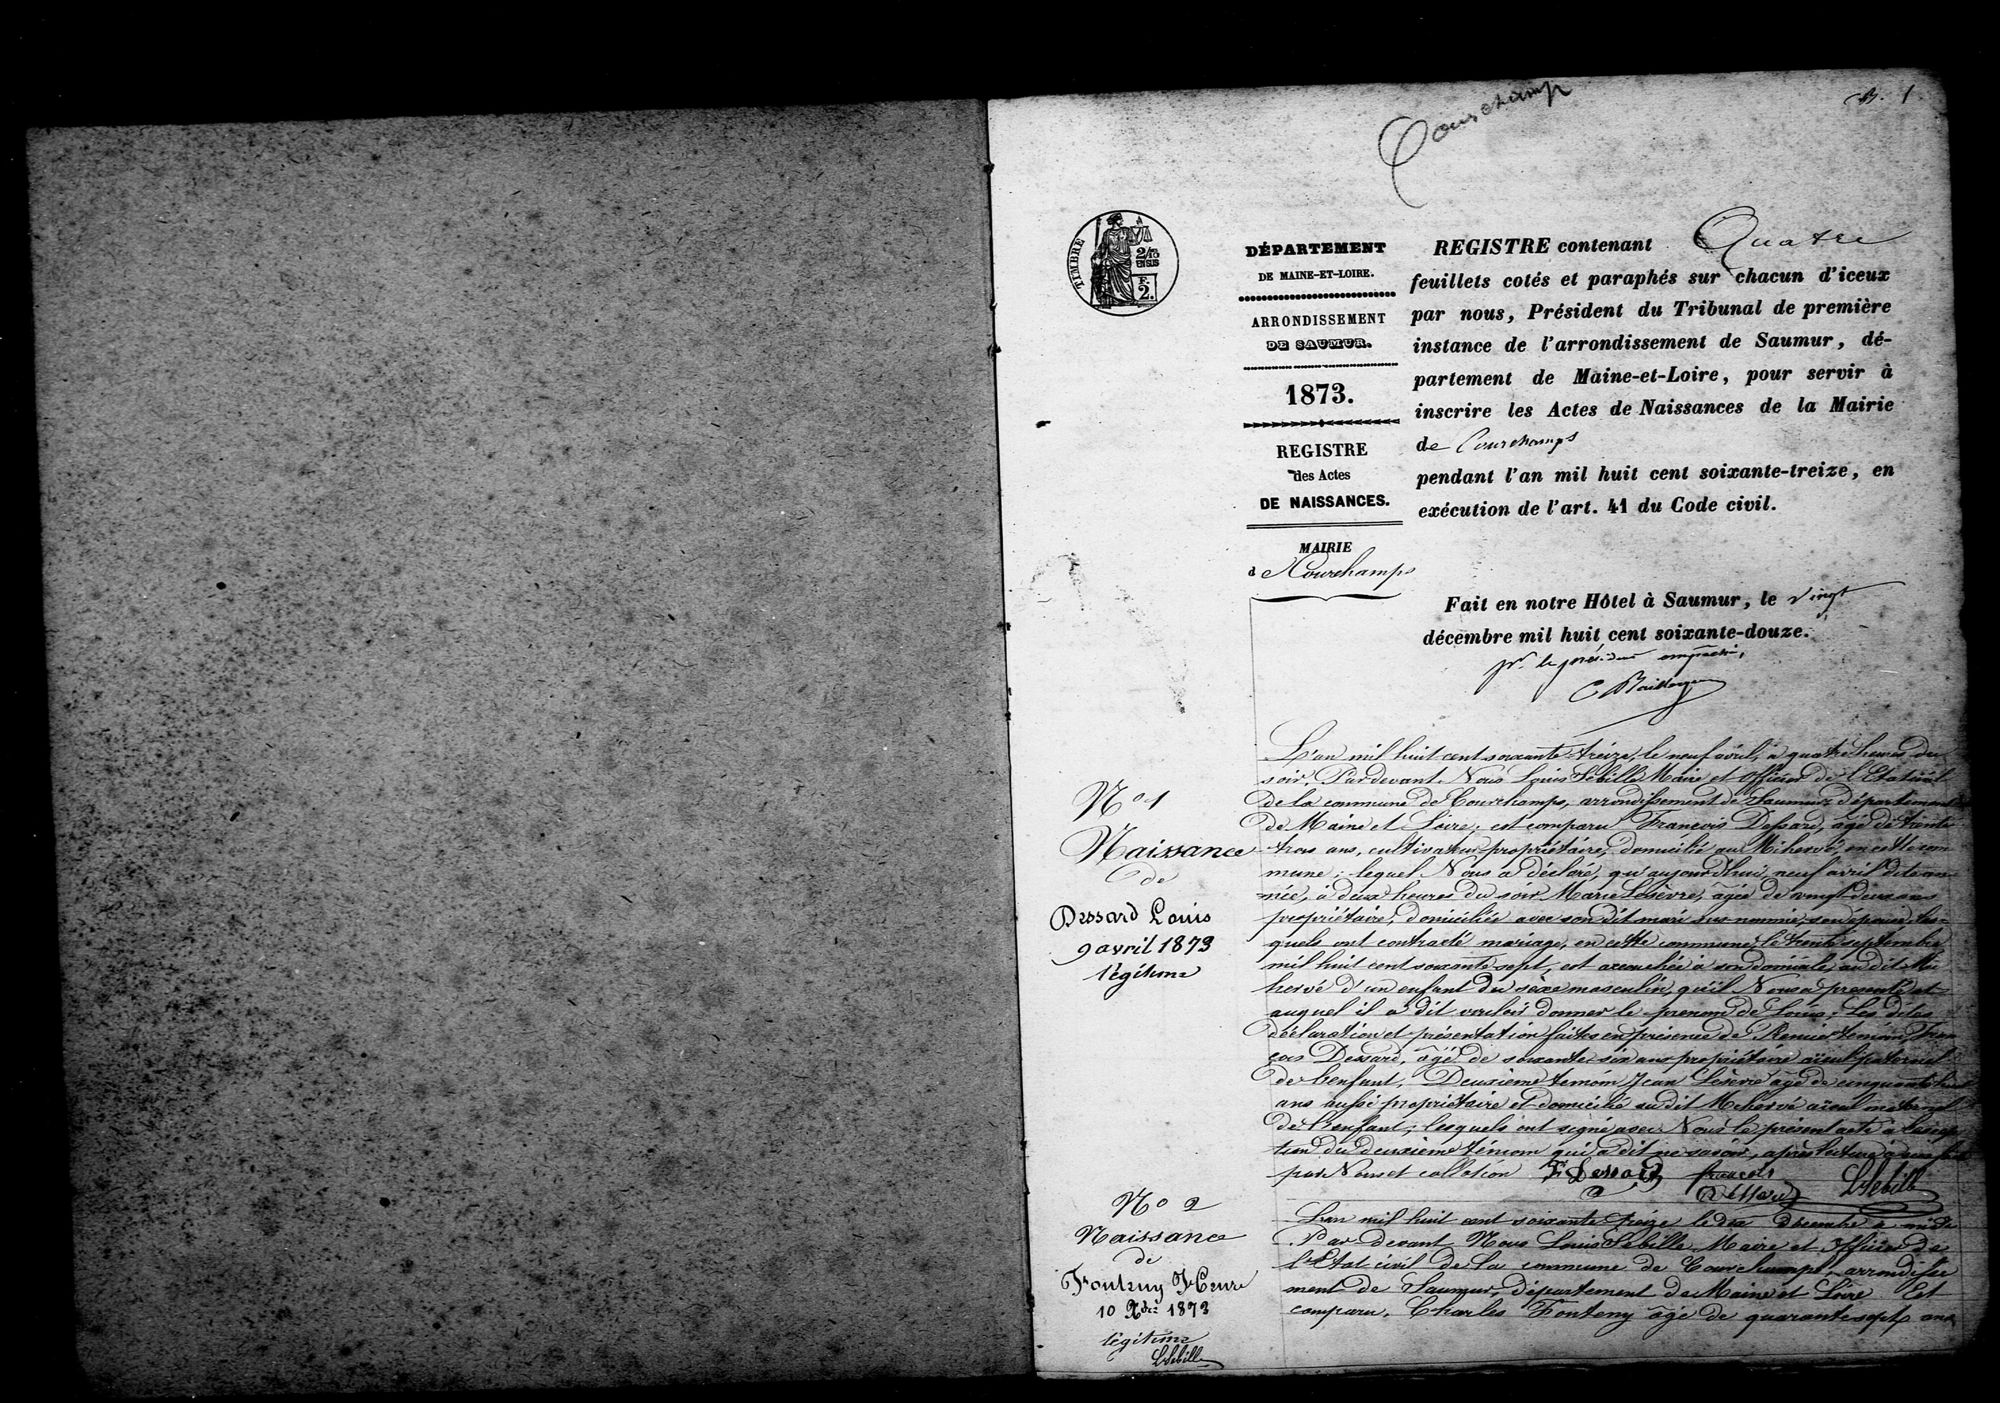 Courchamp
B. 1
TIMBRE
2/10
EN SUS
F.
2.
DÉPARTEMENT
DE MAINE-ET-LOIRE.
ARRONDISSEMENT
DE SAUMUR.
1873.
REGISTRE
des Actes
DE NAISSANCES.
MAIRIE
d e Courchamps
REGISTRE contenant Quatre
feuillets cotés et paraphés sur chacun d'iceux
par nous, Président du Tribunal de première
instance de l'arrondissement de Saumur, dé-
partement de Maine-et-Loire, pour servir à
inscrire les Actes de Naissances de la Mairie
de Courchamps
pendant l'an mil huit cent soixante-treize, en
exécution de l'art. 41 du Code civil.
Fait en notre Hôtel à Saumur, le vingt
décembre mil huit cent soixante-douze.
pr. le président empêché,
No 1
Naissance
de
Dessard Louis
9 avril 1873
légitime
L'an mil huit cent soixante treize, le neuf avril, à quatre heures du
soir Pardevant Nous Louis Sébille Maire et officier de l'Etat civil
de la commune de Courchamps, arrondissement de Saumur, département
de Maine et Loire; est comparu François Dessard, âgé de trente
trois ans, cultivateur propriétaire, domicilié au Mihervé, en cette com-
mune; lequel Nous a déclaré, qu'aujourd'hui, neuf avril dite an-
née, à deux heures du soir Marie Lesèvre, âgée de vingt deux ans
propriétaire, domiciliée avec son dit mari sus-nommé, son épouse, les-
quels ont contracté mariage, en cette commune, le trente septembre
mil huit cent soixante sept, est accouchée à son domicile, au dit Mi-
hervé d'un enfant du sèxe masculin, qu'il Nous a présenté et
auquel il a dit vouloir donner le prénom de Louis; Les dites
déclaration et présentation faites en présence de Premier témoin Fran-
çois Dessard, âgé de soixante six ans propriétaire aïeul paternel
de l'enfant, Deuxième témoin Jean Lesèvre âgé de cinquante huit
ans aussi propriétaire et domicilié au dit Mihervé aïeul maternel
de l'enfant; lesquels ont signé avec Nous le présent acte à l'excep-
tion du deuxième témoin qui a dit ne savoir, après lecture à eux faite
par Nous et collation F Dessard françois Dessard LSébille
No 2
Naissance
de
Fonteny Henri
10 Xbre 1873
légitime
LSébille
L'an mil huit cent soixante treize le dix décembre à midi
Par devant Nous Louis Sébille Maire et officier de
l'Etat civil de la commune de Courchamps arrondisse
ment de Saumur, département de Maine et Loire Est
comparu, Charles Fonteny âgé de quarante sept ans,